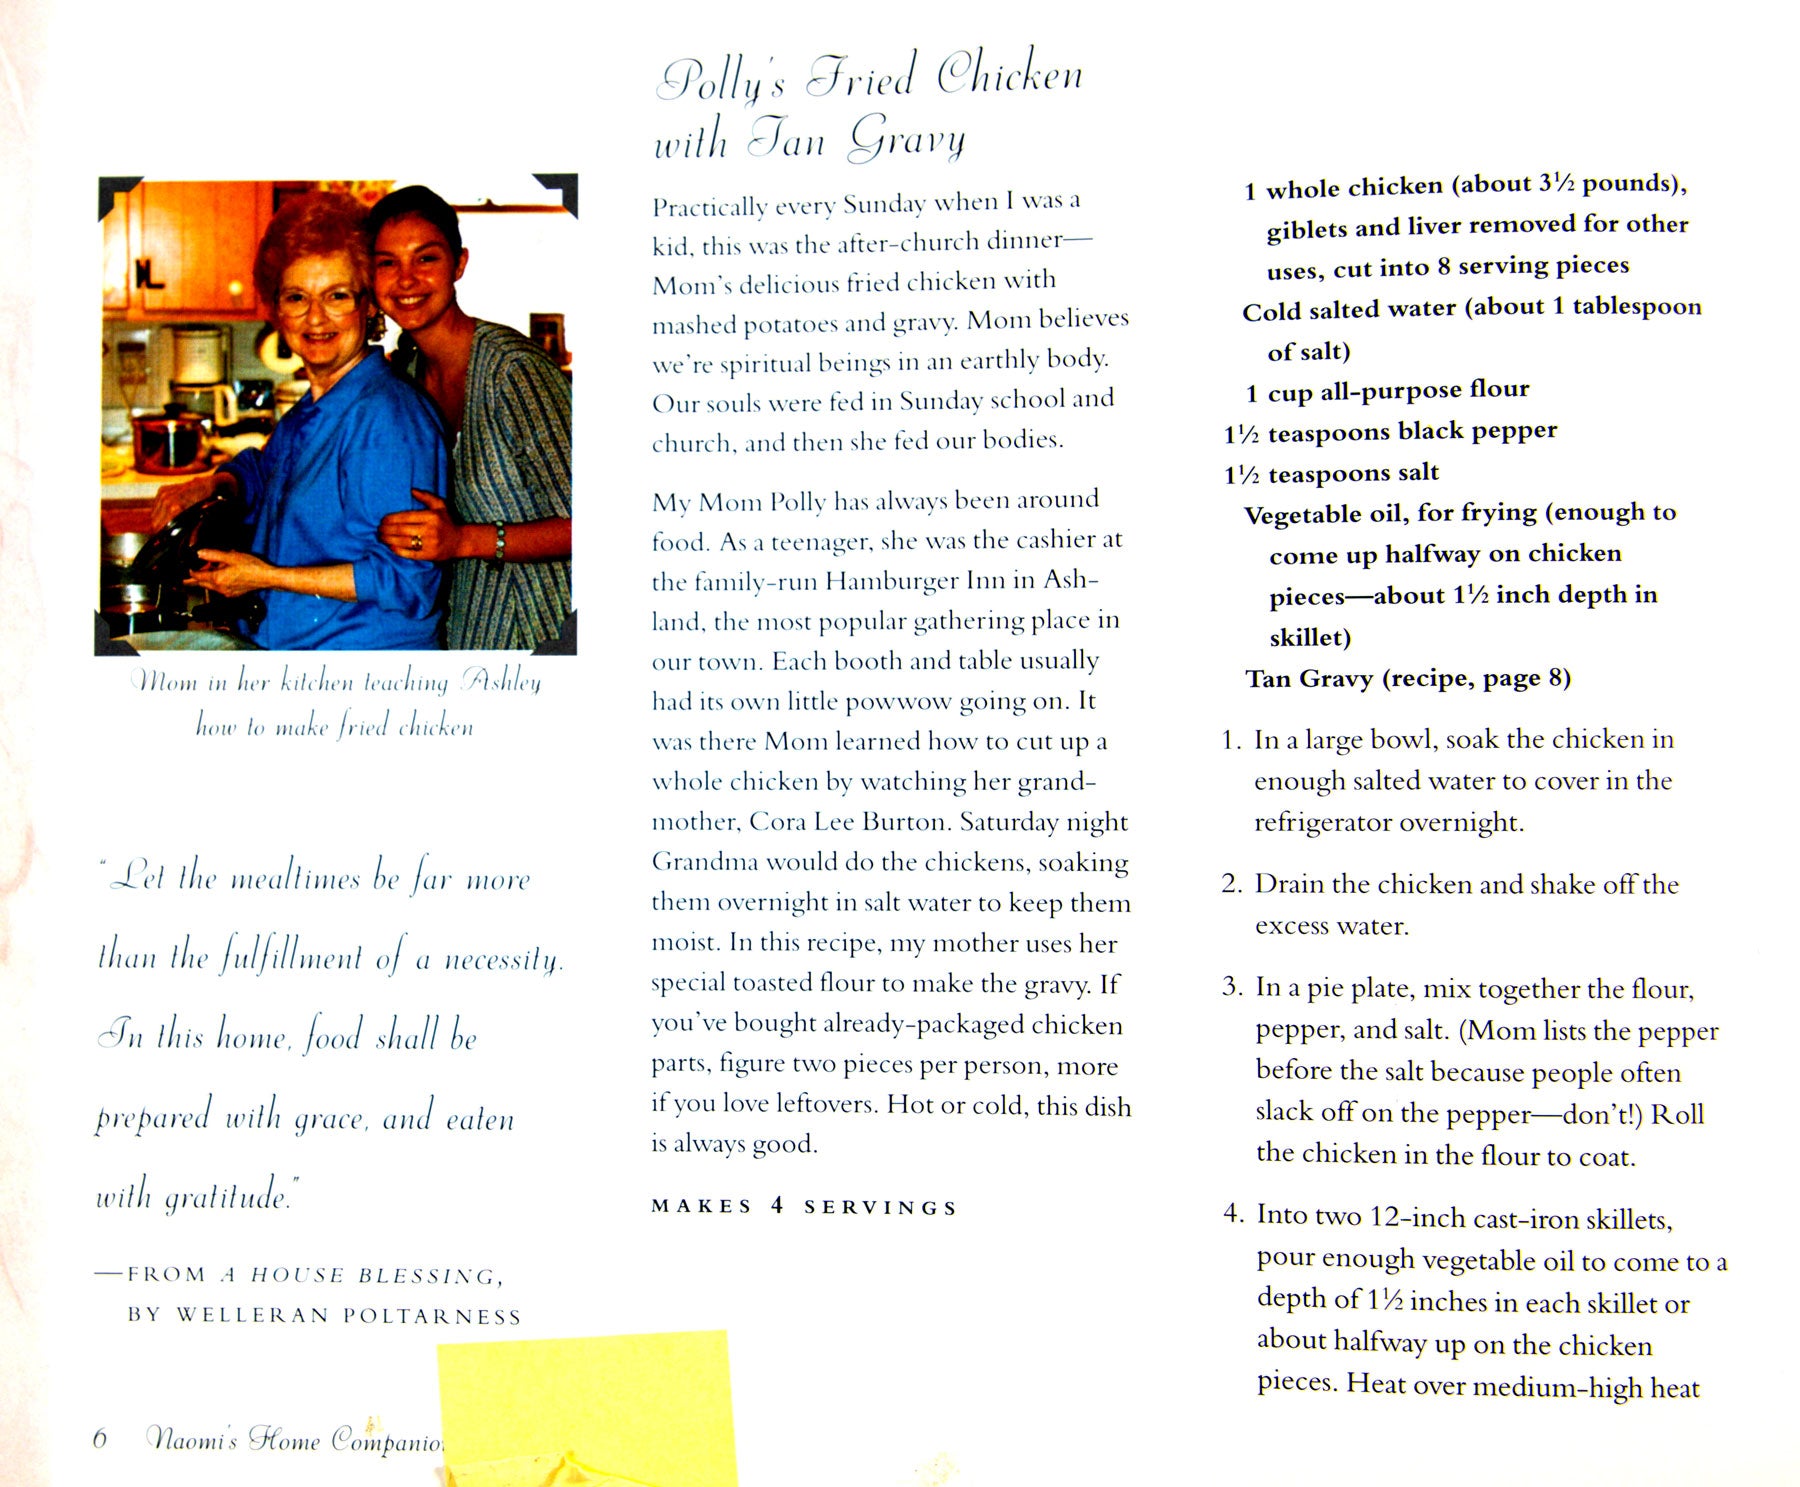 Polly's Fried Chicken
with Tan Gravy
Mom in her kitchen teaching Ashley
how to make fried chicken
"Let the mealtimes be far more
than the fulfillment of a necessity.
In this home, food shall be
prepared with grace, and eaten
with gratitude."
—FROM A HOUSE BLESSING,
BY WELLERAN POLTARNESS
Practically every Sunday when I was a
kid, this was the after-church dinner—
Mom's delicious fried chicken with
mashed potatoes and gravy. Mom believes
we're spiritual beings in an earthly body.
Our souls were fed in Sunday school and
church, and then she fed our bodies.
My Mom Polly has always been around
food. As a teenager, she was the cashier at
the family-run Hamburger Inn in Ash-
land, the most popular gathering place in
our town. Each booth and table usually
had its own little powwow going on. It
was there Mom learned how to cut up a
whole chicken by watching her grand-
mother, Cora Lee Burton. Saturday night
Grandma would do the chickens, soaking
them overnight in salt water to keep them
moist. In this recipe, my mother uses her
special toasted flour to make the gravy. If
you've bought already-packaged chicken
parts, figure two pieces per person, more
if you love leftovers. Hot or cold, this dish
is always good.
MAKES 4 SERVINGS
1 whole chicken (about 3½ pounds),
giblets and liver removed for other
uses, cut into 8 serving pieces
Cold salted water (about 1 tablespoon
of salt)
1 cup all-purpose flour
1½ teaspoons black pepper
1½ teaspoons salt
Vegetable oil, for frying (enough to
come up halfway on chicken
pieces—about 1½ inch depth in
skillet)
Tan Gravy (recipe, page 8)
1. In a large bowl, soak the chicken in
enough salted water to cover in the
refrigerator overnight.
2. Drain the chicken and shake off the
excess water.
3. In a pie plate, mix together the flour,
pepper, and salt. (Mom lists the pepper
before the salt because people often
slack off on the pepper—don't!) Roll
the chicken in the flour to coat.
4. Into two 12-inch cast-iron skillets,
pour enough vegetable oil to come to a
depth of 1½ inches in each skillet or
about halfway up on the chicken
pieces. Heat over medium-high heat
6 Naomi's Home Companio